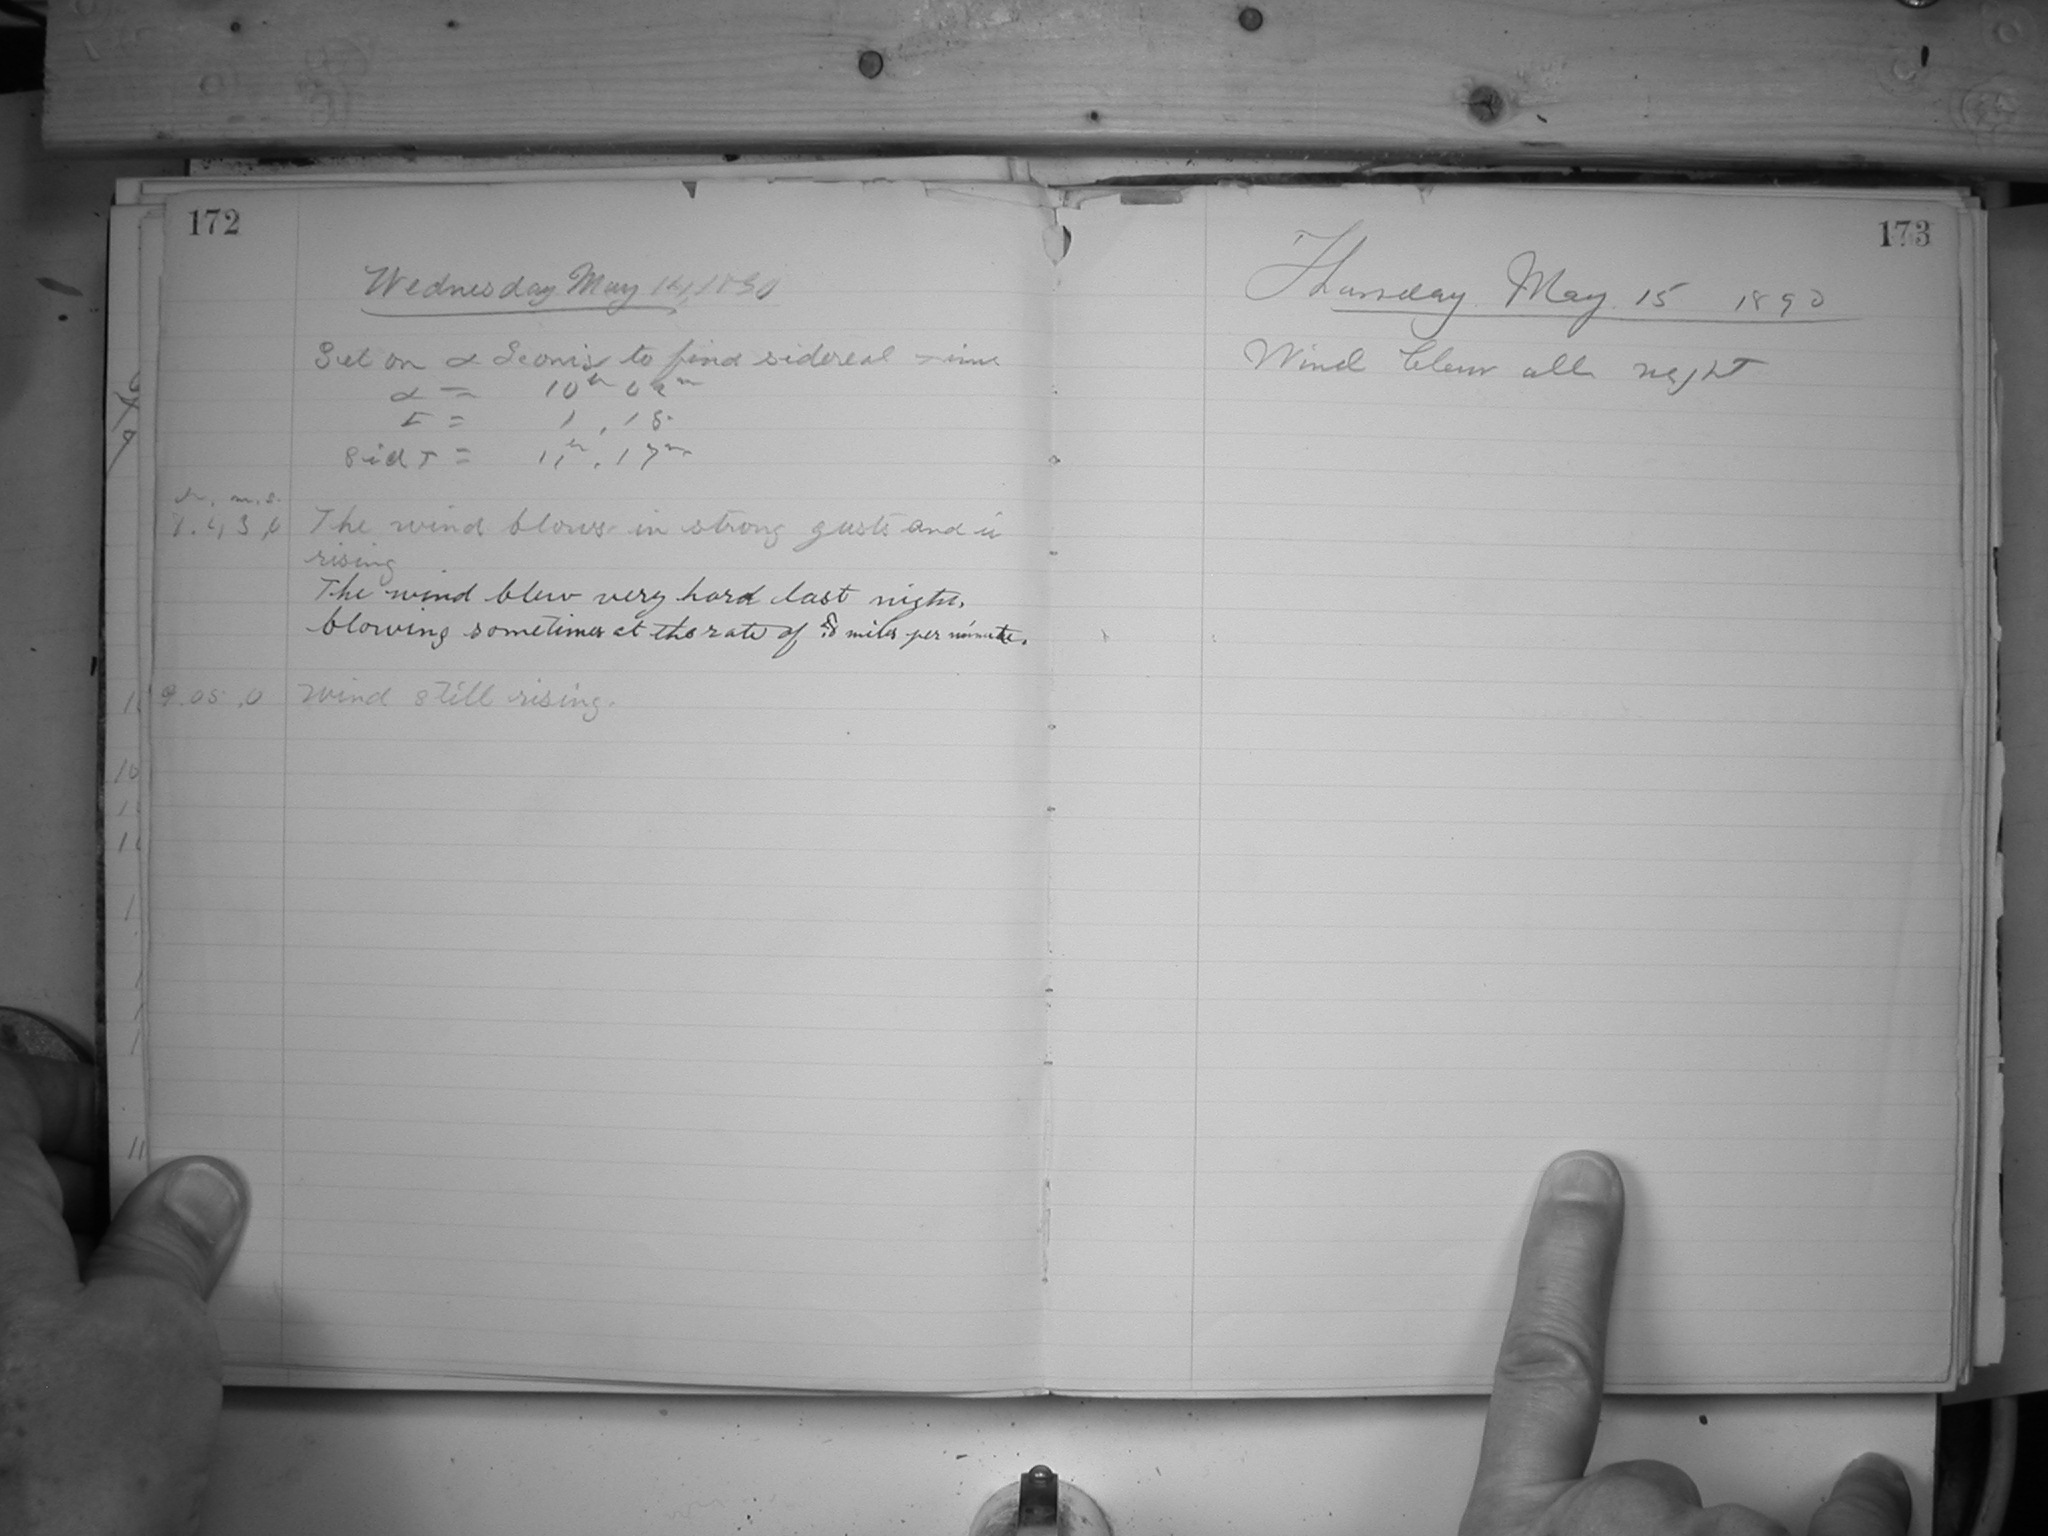 172
Wednesday May 14, 1890
Set on α Leonis to find sidereal time
α = 10h 02m
T = 1 . 15
Sid T = 11h . 17m
h. m. s.
The wind blows in strong gusts and is
rising
The wind blew very hard last night,
blowing sometimes at the rate of miles per minute.
9.05.0 Wind still rising.
173
Thursday May 15 1890
Wind blew all night